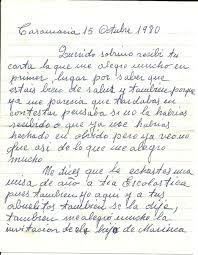 Casamaria 15 Octubre 1980
Querido sobrino recibí tu
carta la que me alegro mucho en
primer lugar por saber que
estais bien de salud y tambien porque
ya me parecia que tardabas en
contestar pensaba si no la habrias
recibido o que ya nos habias
hechado en olvido pero ya veo no
que asi de lo que me alegro
mucho
Me dices que le echastes una
misa de año a tia Escolastica
pues tambien yo aqui y a tus
abuelitos tambien se la dije,
tambien me alegró mucho la
invitacion de la hija de